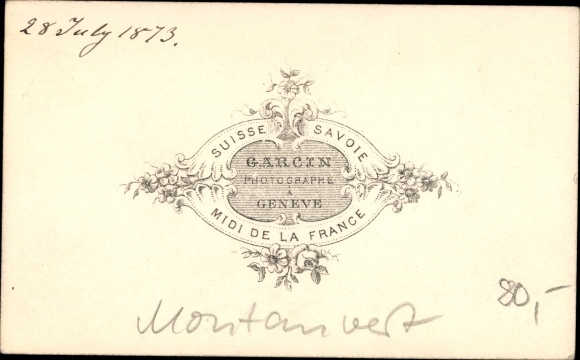 28 July 1873.
SUISSE SAVOIE
GARCIN
PHOTOGRAPHE
À
GENÈVE
MIDI DE LA FRANCE
80,-
Montanvert